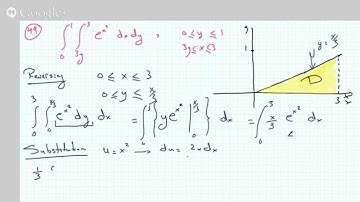 Google+
49
∫₀¹ ∫₃ᵧ³ e^{x²} dx dy ; 0 ≤ y ≤ 1
3y ≤ x ≤ 3
y = x/3
1
D
3
x
Reversing 0 ≤ x ≤ 3
0 ≤ y ≤ x/3
∫₀³ ∫₀^{x/3} e^{x²} dy dx = ∫₀³ { y e^{x²} |₀^{x/3} } dx = ∫₀³ x/3 e^{x²} dx
Substitution u = x² → du = 2x dx
1/3